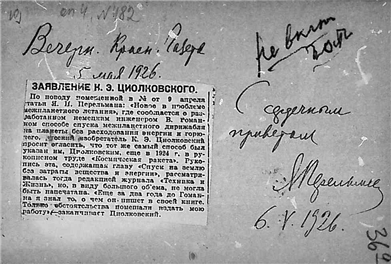 оп 4 № 182
Вечерн. Красн. Газета
5 мая 1926.
ЗАЯВЛЕНИЕ К. Э. ЦИОЛКОВСКОГО.
По поводу помещенной в № от 9 апреля
статьи Я. И. Перельмана: «Новое в проблеме
межпланетного летания», где сообщается о раз-
работанном немецким инженером В. Гоман-
ном способе спуска межпланетного дирижабля
на планеты без расходования энергии и горю-
чего, русский изобретатель К. Э. Циолковский
просит огласить, что тот же самый способ был
указан им, Циолковским, еще в 1924 г. в ру-
кописном труде «Космическая ракета». Руко-
пись эта, содержащая главу «Спуск на землю
без затраты вещества и энергии», рассматри-
валась тогда редакцией журнала «Техника и
Жизнь», но, в виду большого об'ема, не могла
быть напечатана. «Еще за два года до Гоман-
на я знал то, о чем он пишет в своей книге.
Только обстоятельства помешали издать мою
работу» — заканчивает Циолковский.
С сердечным
приветом
ЯПерельман
6.V.1926.
362